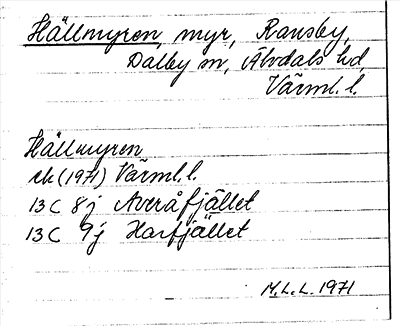 Hällmyren, myr, Ransby,
Dalby sn, Älvdals hd
Värml. l.
Hällmyren
ek (1971) Värml. l.
13 C 8j Averåfjället
13 C 9j Harfjället
M.L.L. 1971